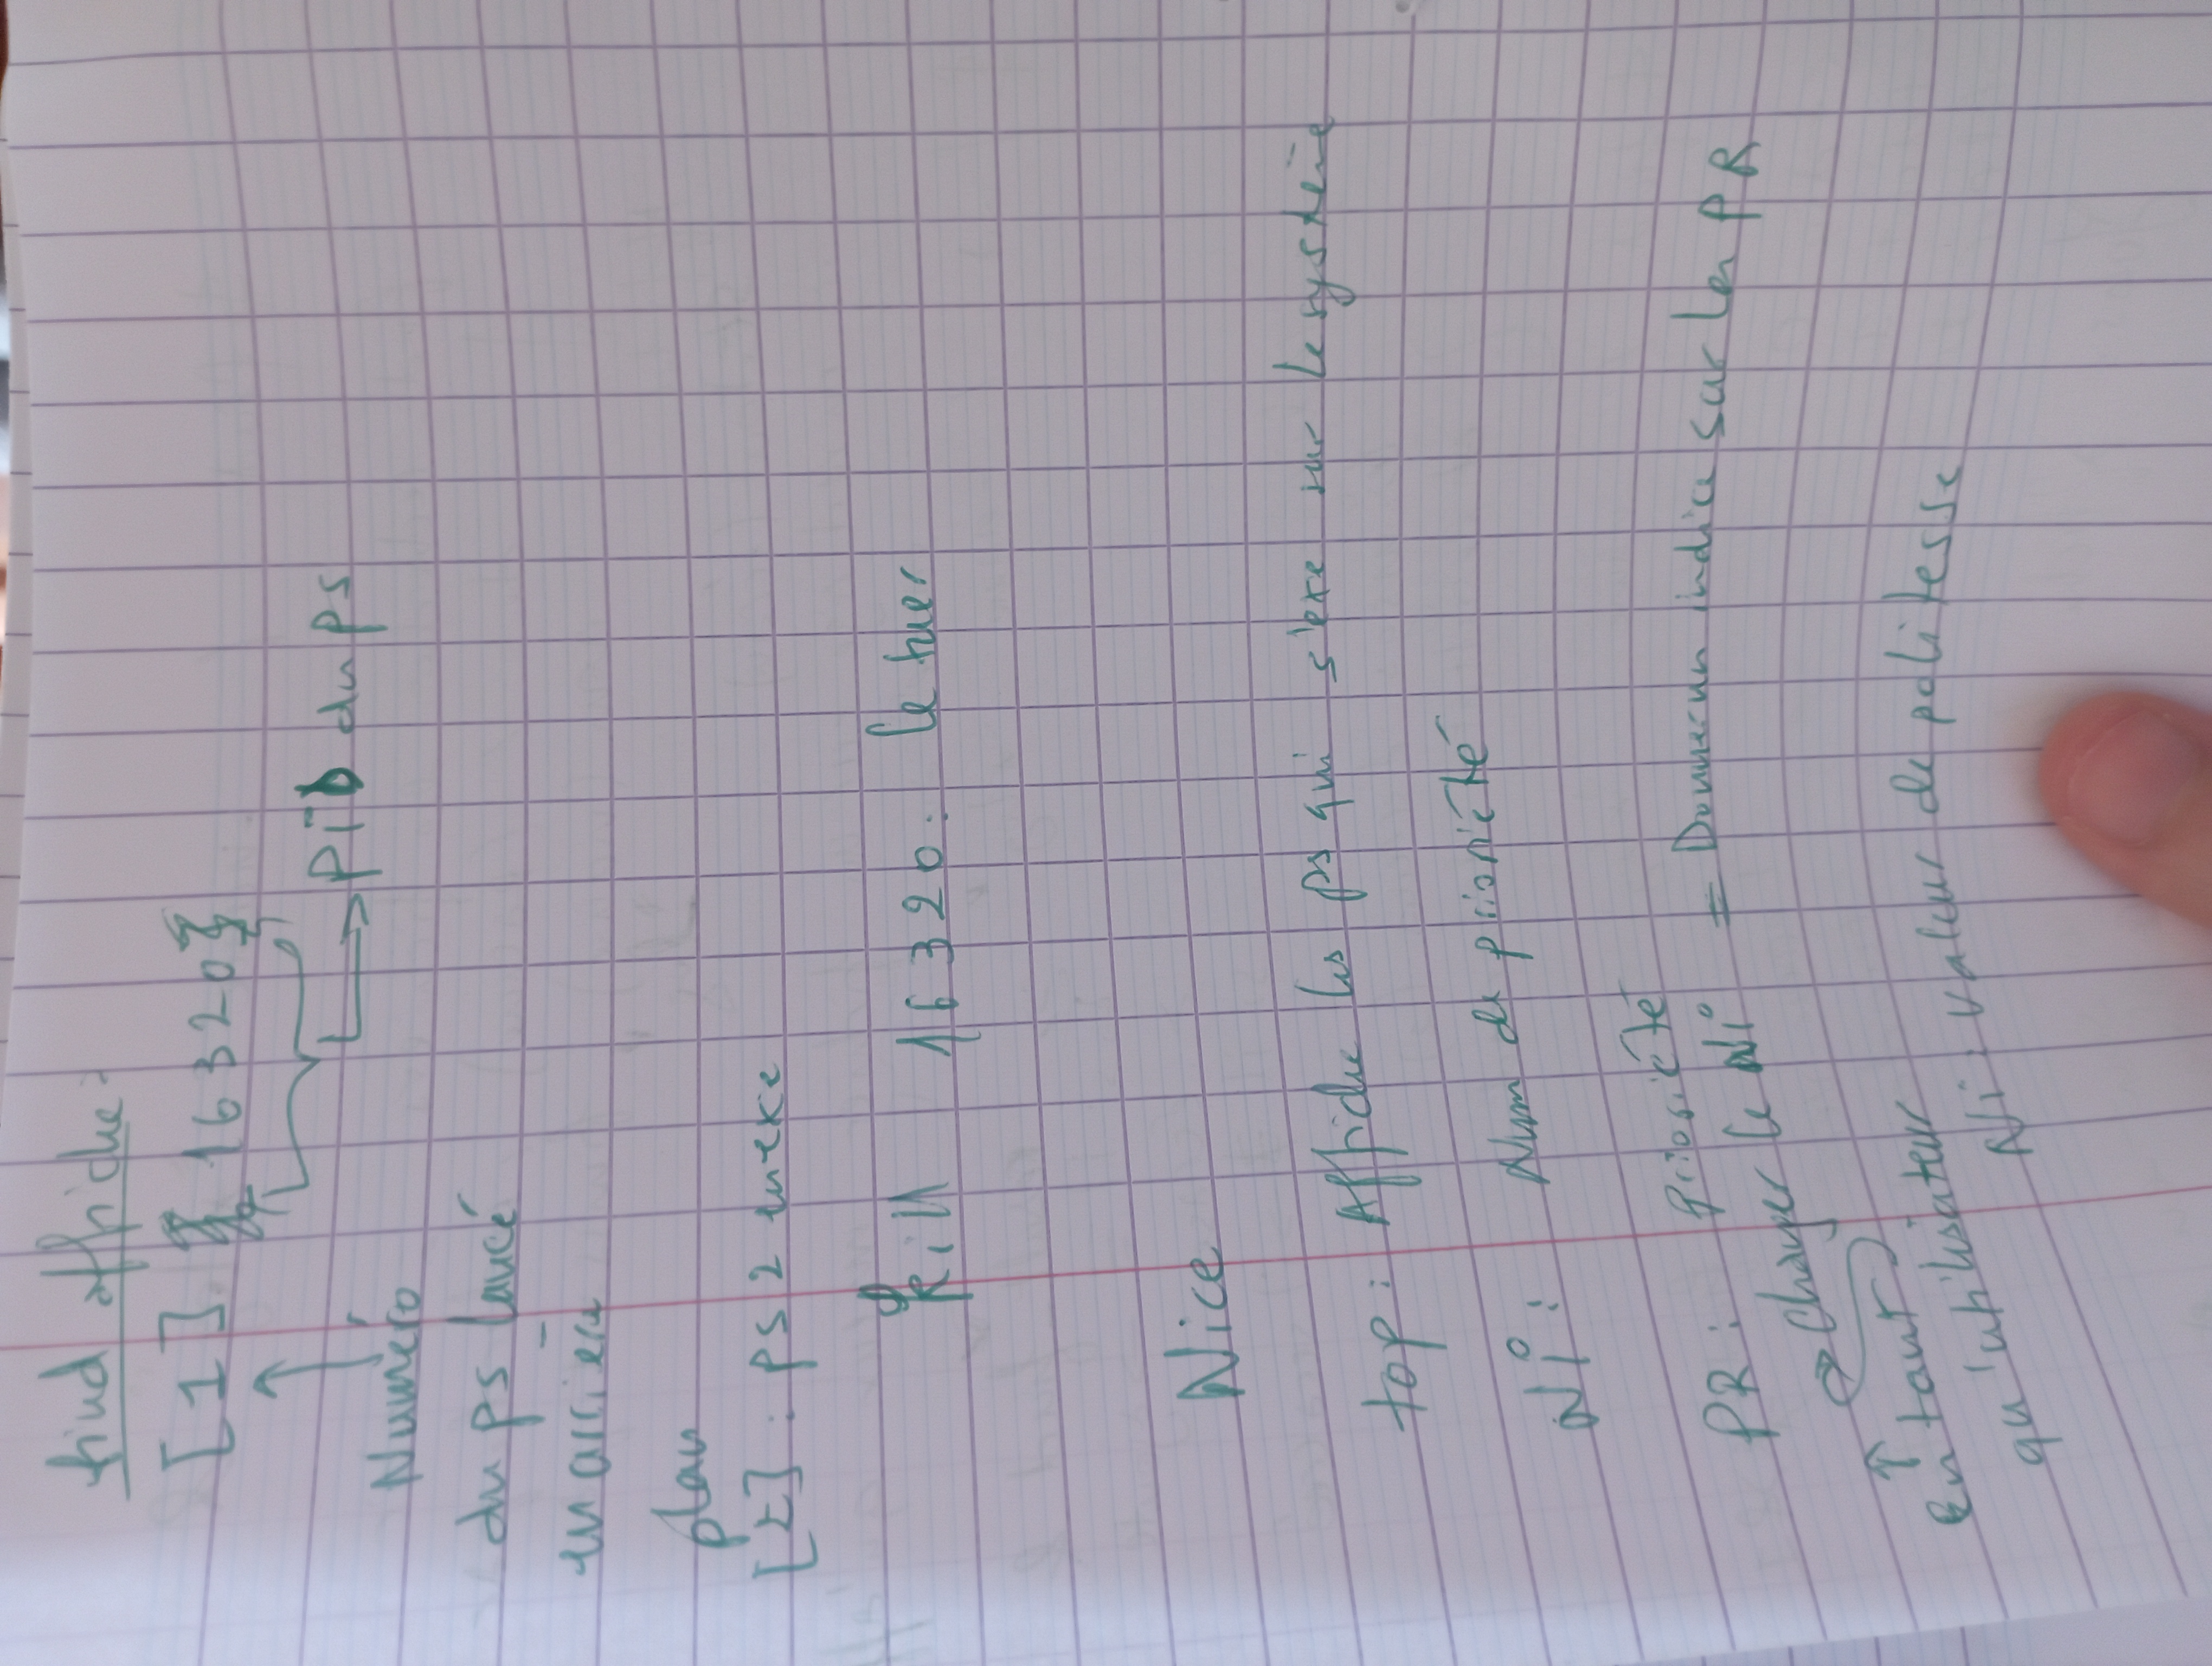 find affiche :
[1] 16320
PiD du ps
Numéro
du ps lancé
en arrière
plan
[2] : ps 2 en exe
kill 16320 : le tuer
Nice
top : Affiche les ps qui s'exe sur le système
Ni : Num de priorièté
PR : priorièté
→ changer le Ni = Donner un indice sur les PR
En tant
qu'utilisateur
Ni : valeur de politesse